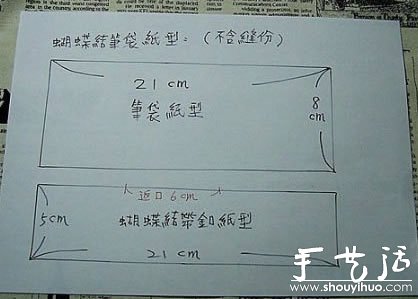 蝴蝶結筆袋紙型：（不含縫份）
21cm
8cm
筆袋紙型
返口6cm
5cm
蝴蝶結帶釦紙型
21cm
手艺活
www.shouyihuo.com